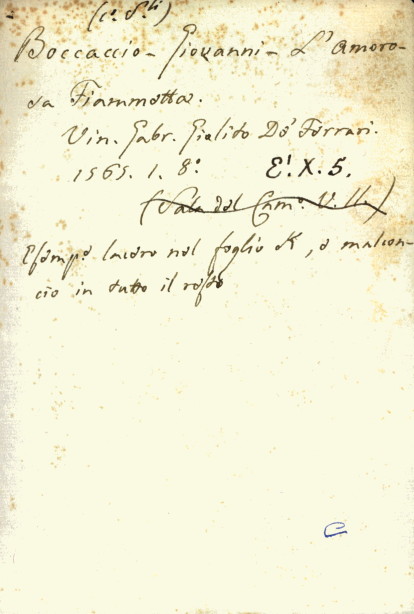 (c. S.ti)
Boccaccio - Giovanni - L'Amoro-
sa Fiammetta.
Vin. Gabr. Giolito De' Ferrari.
1565. 1. 8.o E'. X. 5.
(Sala del Cam.o V. 11.)
Esemp.e lacero nel foglio K, e malcon-
cio in tutto il resto
C